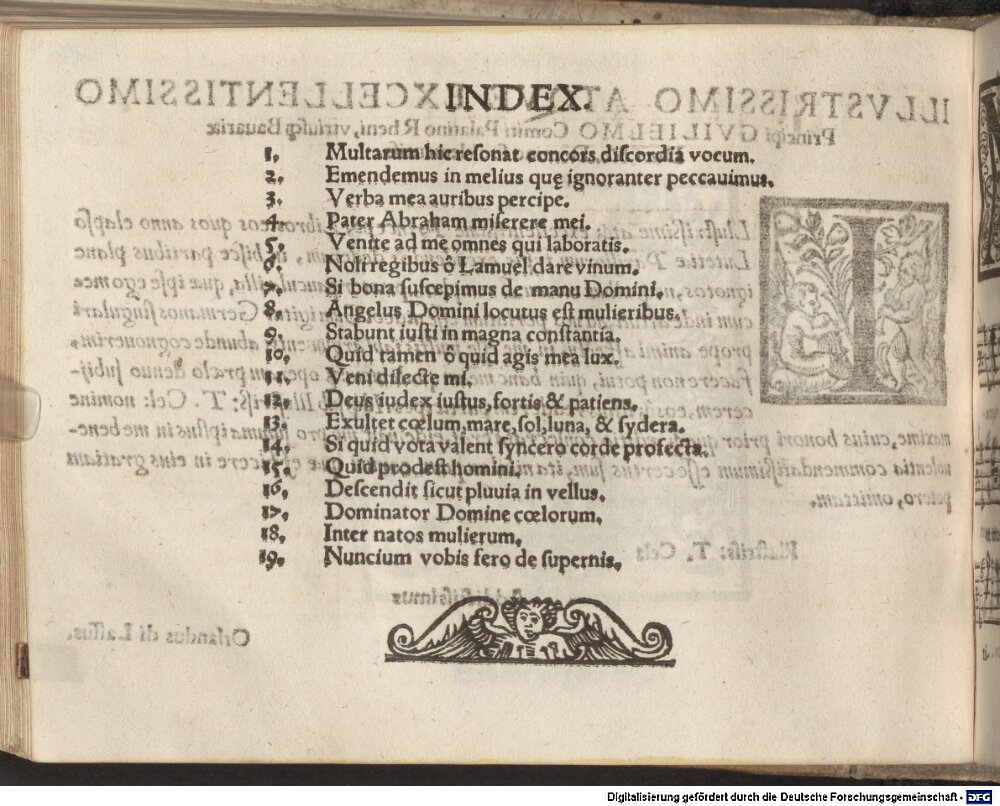 INDEX.
1. Multarum hic reſonat concors diſcordia vocum.
2. Emendemus in melius quę ignoranter peccauimus.
3. Verba mea auribus percipe.
4. Pater Abraham miſerere mei.
5. Venite ad me omnes qui laboratis.
6. Noli regibus ô Lamuel dare vinum.
7. Si bona ſuſcepimus de manu Domini.
8. Angelus Domini locutus eſt mulieribus.
9. Stabunt iuſti in magna conſtantia.
10. Quid tamen ô quid agis mea lux.
11. Veni dilecte mi.
12. Deus iudex iuſtus, fortis & patiens.
13. Exultet cœlum, mare, ſol, luna, & ſydera.
14. Si quid vota valent ſyncero corde profecta.
15. Quid prodeſt homini.
16. Deſcendit ſicut pluuia in vellus.
17. Dominator Domine cœlorum.
18. Inter natos mulierum.
19. Nuncium vobis fero de ſupernis.
Digitalisierung gefördert durch die Deutsche Forschungsgemeinschaft - DFG